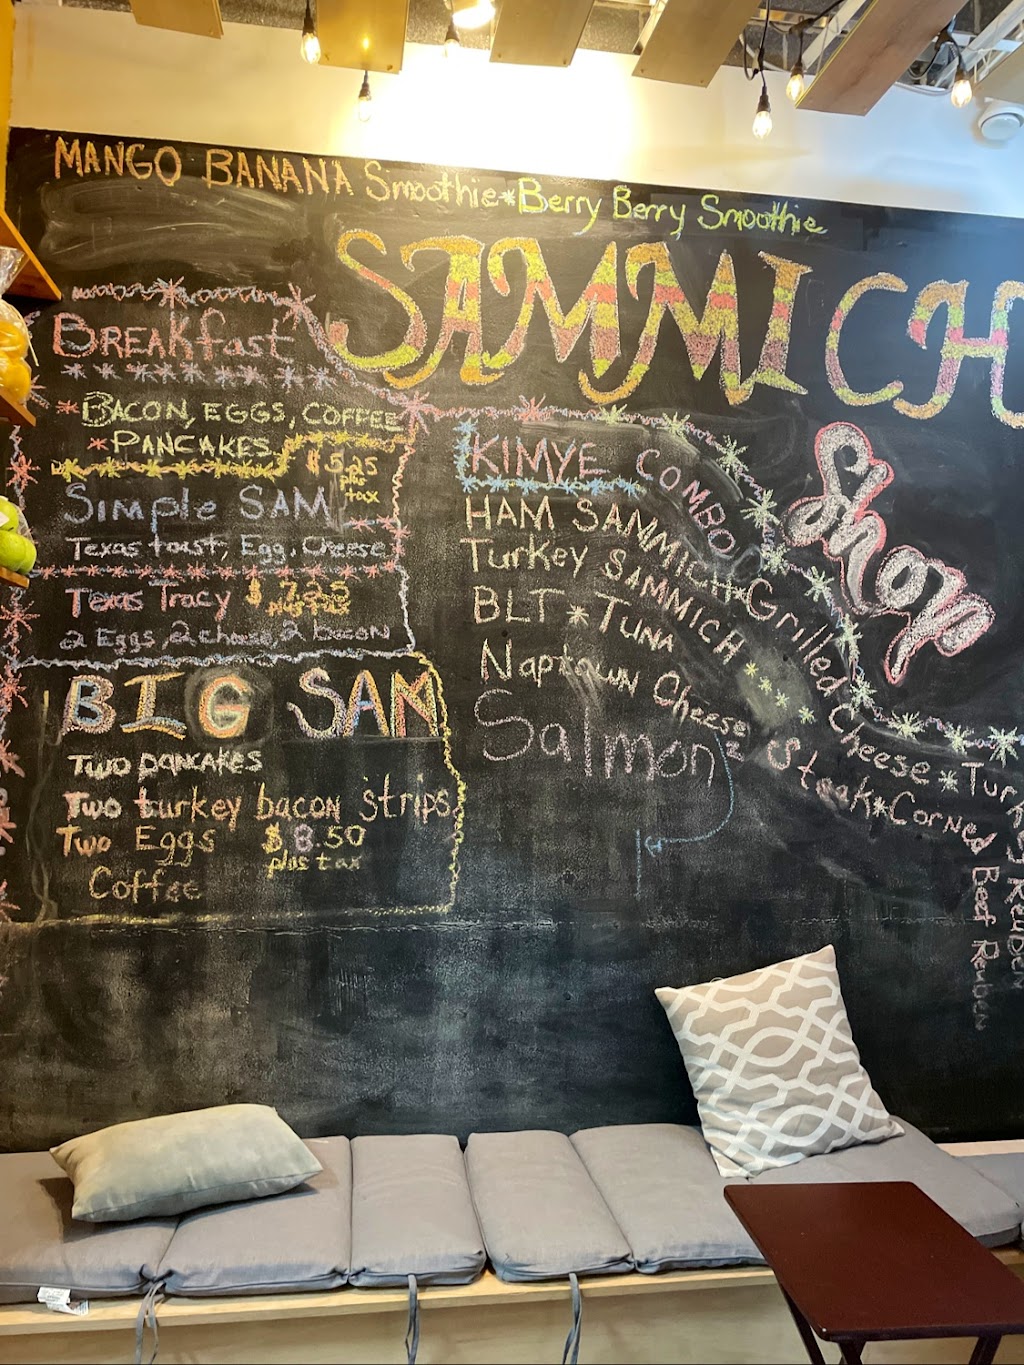 MANGO BANANA Smoothie*Berry Berry Smoothie
SAMMICH
Shop
BREAKfast
* BACON, EGGS, COFFEE
* PANCAKES
$5.25
plus
tax
Simple SAM
Texas toast, Egg, Cheese
Texas Tracy $7.25
plus tax
2 Eggs, 2 cheese, 2 bacon
BIG SAM
Two pancakes
Two turkey bacon strips
Two Eggs $8.50
plus tax
Coffee
KIMYE COMBO
HAM SAMMICH*Grilled Cheese*Turkey Reuben
Turkey SAMMICH
BLT*TUNA
Naptown Cheese Steak*Corned Beef Reuben
Salmon